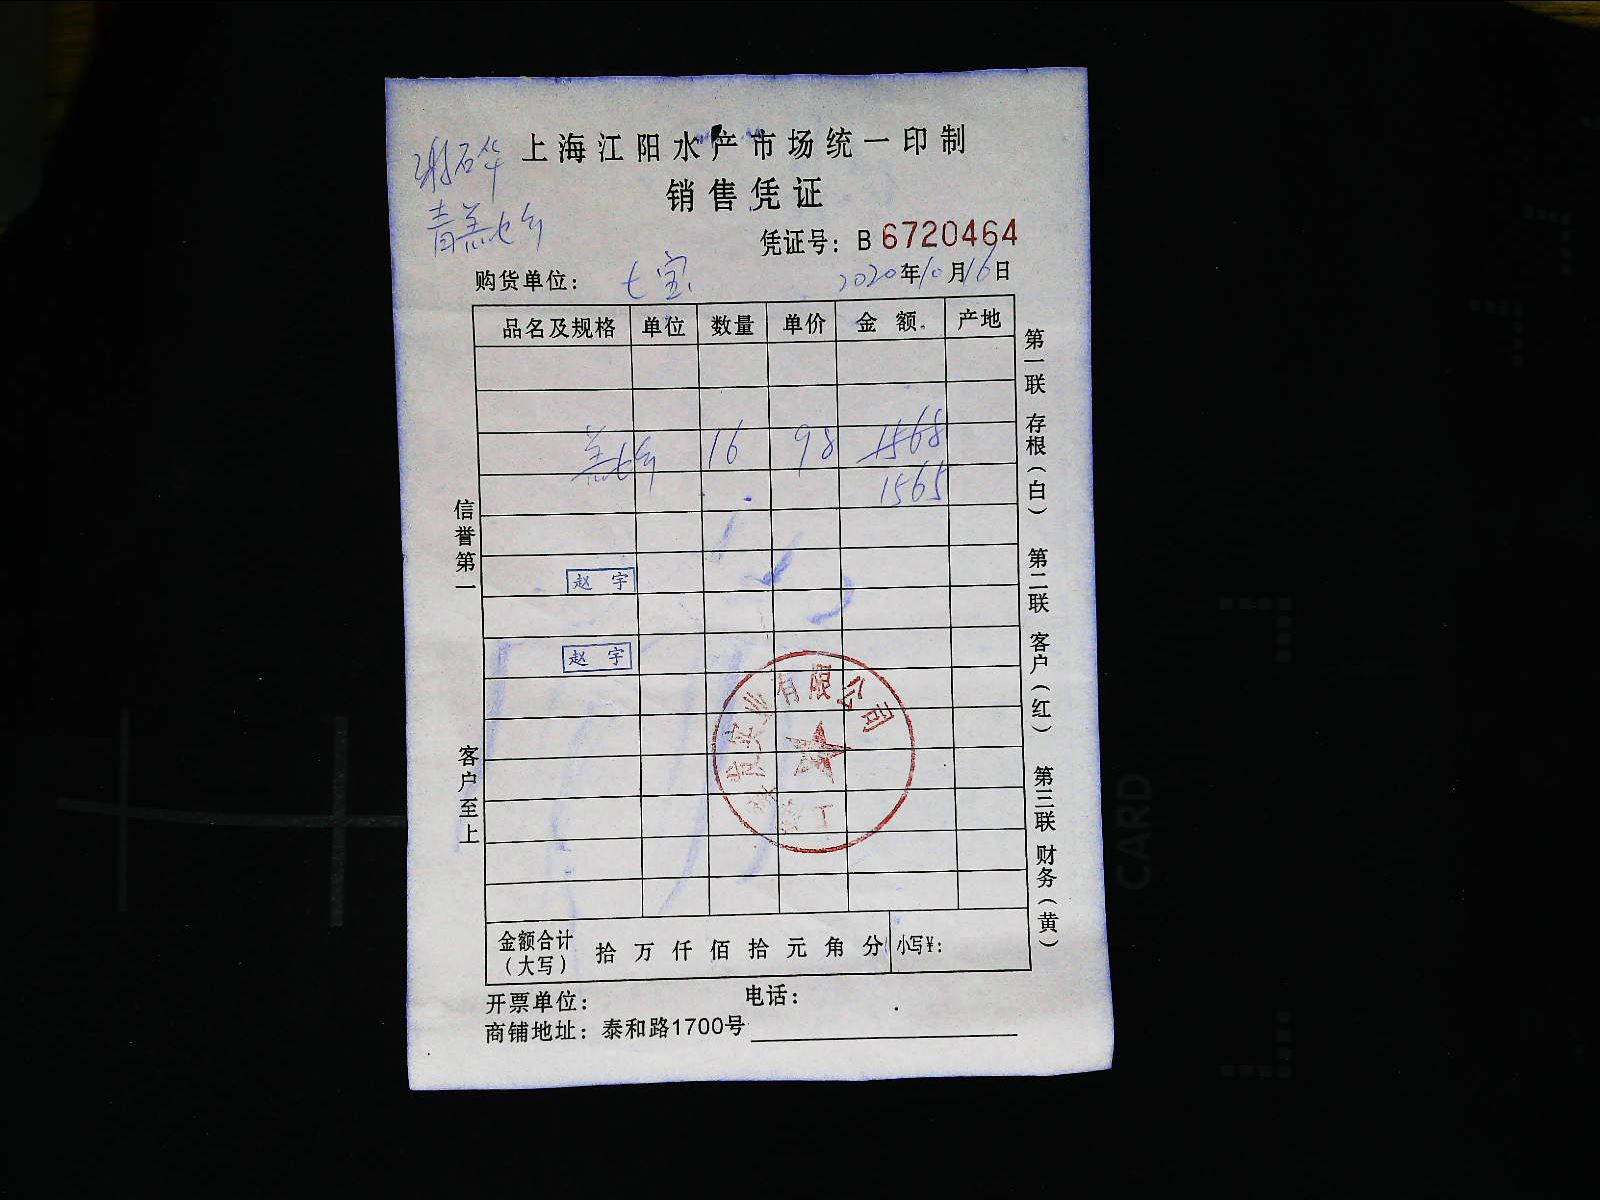 上海江阳水产市场统一印制
销售凭证
凭证号：B 6720464
购货单位： 七宝 2020年10月16日
品名及规格 单位 数量 单价 金额 产地
16 98 1568
1565
赵宇
赵宇
实业有限公司
信誉第一
客户至上
第一联 存根（白） 第二联 客户（红） 第三联 财务（黄）
金额合计（大写） 拾 万 仟 佰 拾 元 角 分 小写¥：
开票单位： 电话：
商铺地址：泰和路1700号
CARD